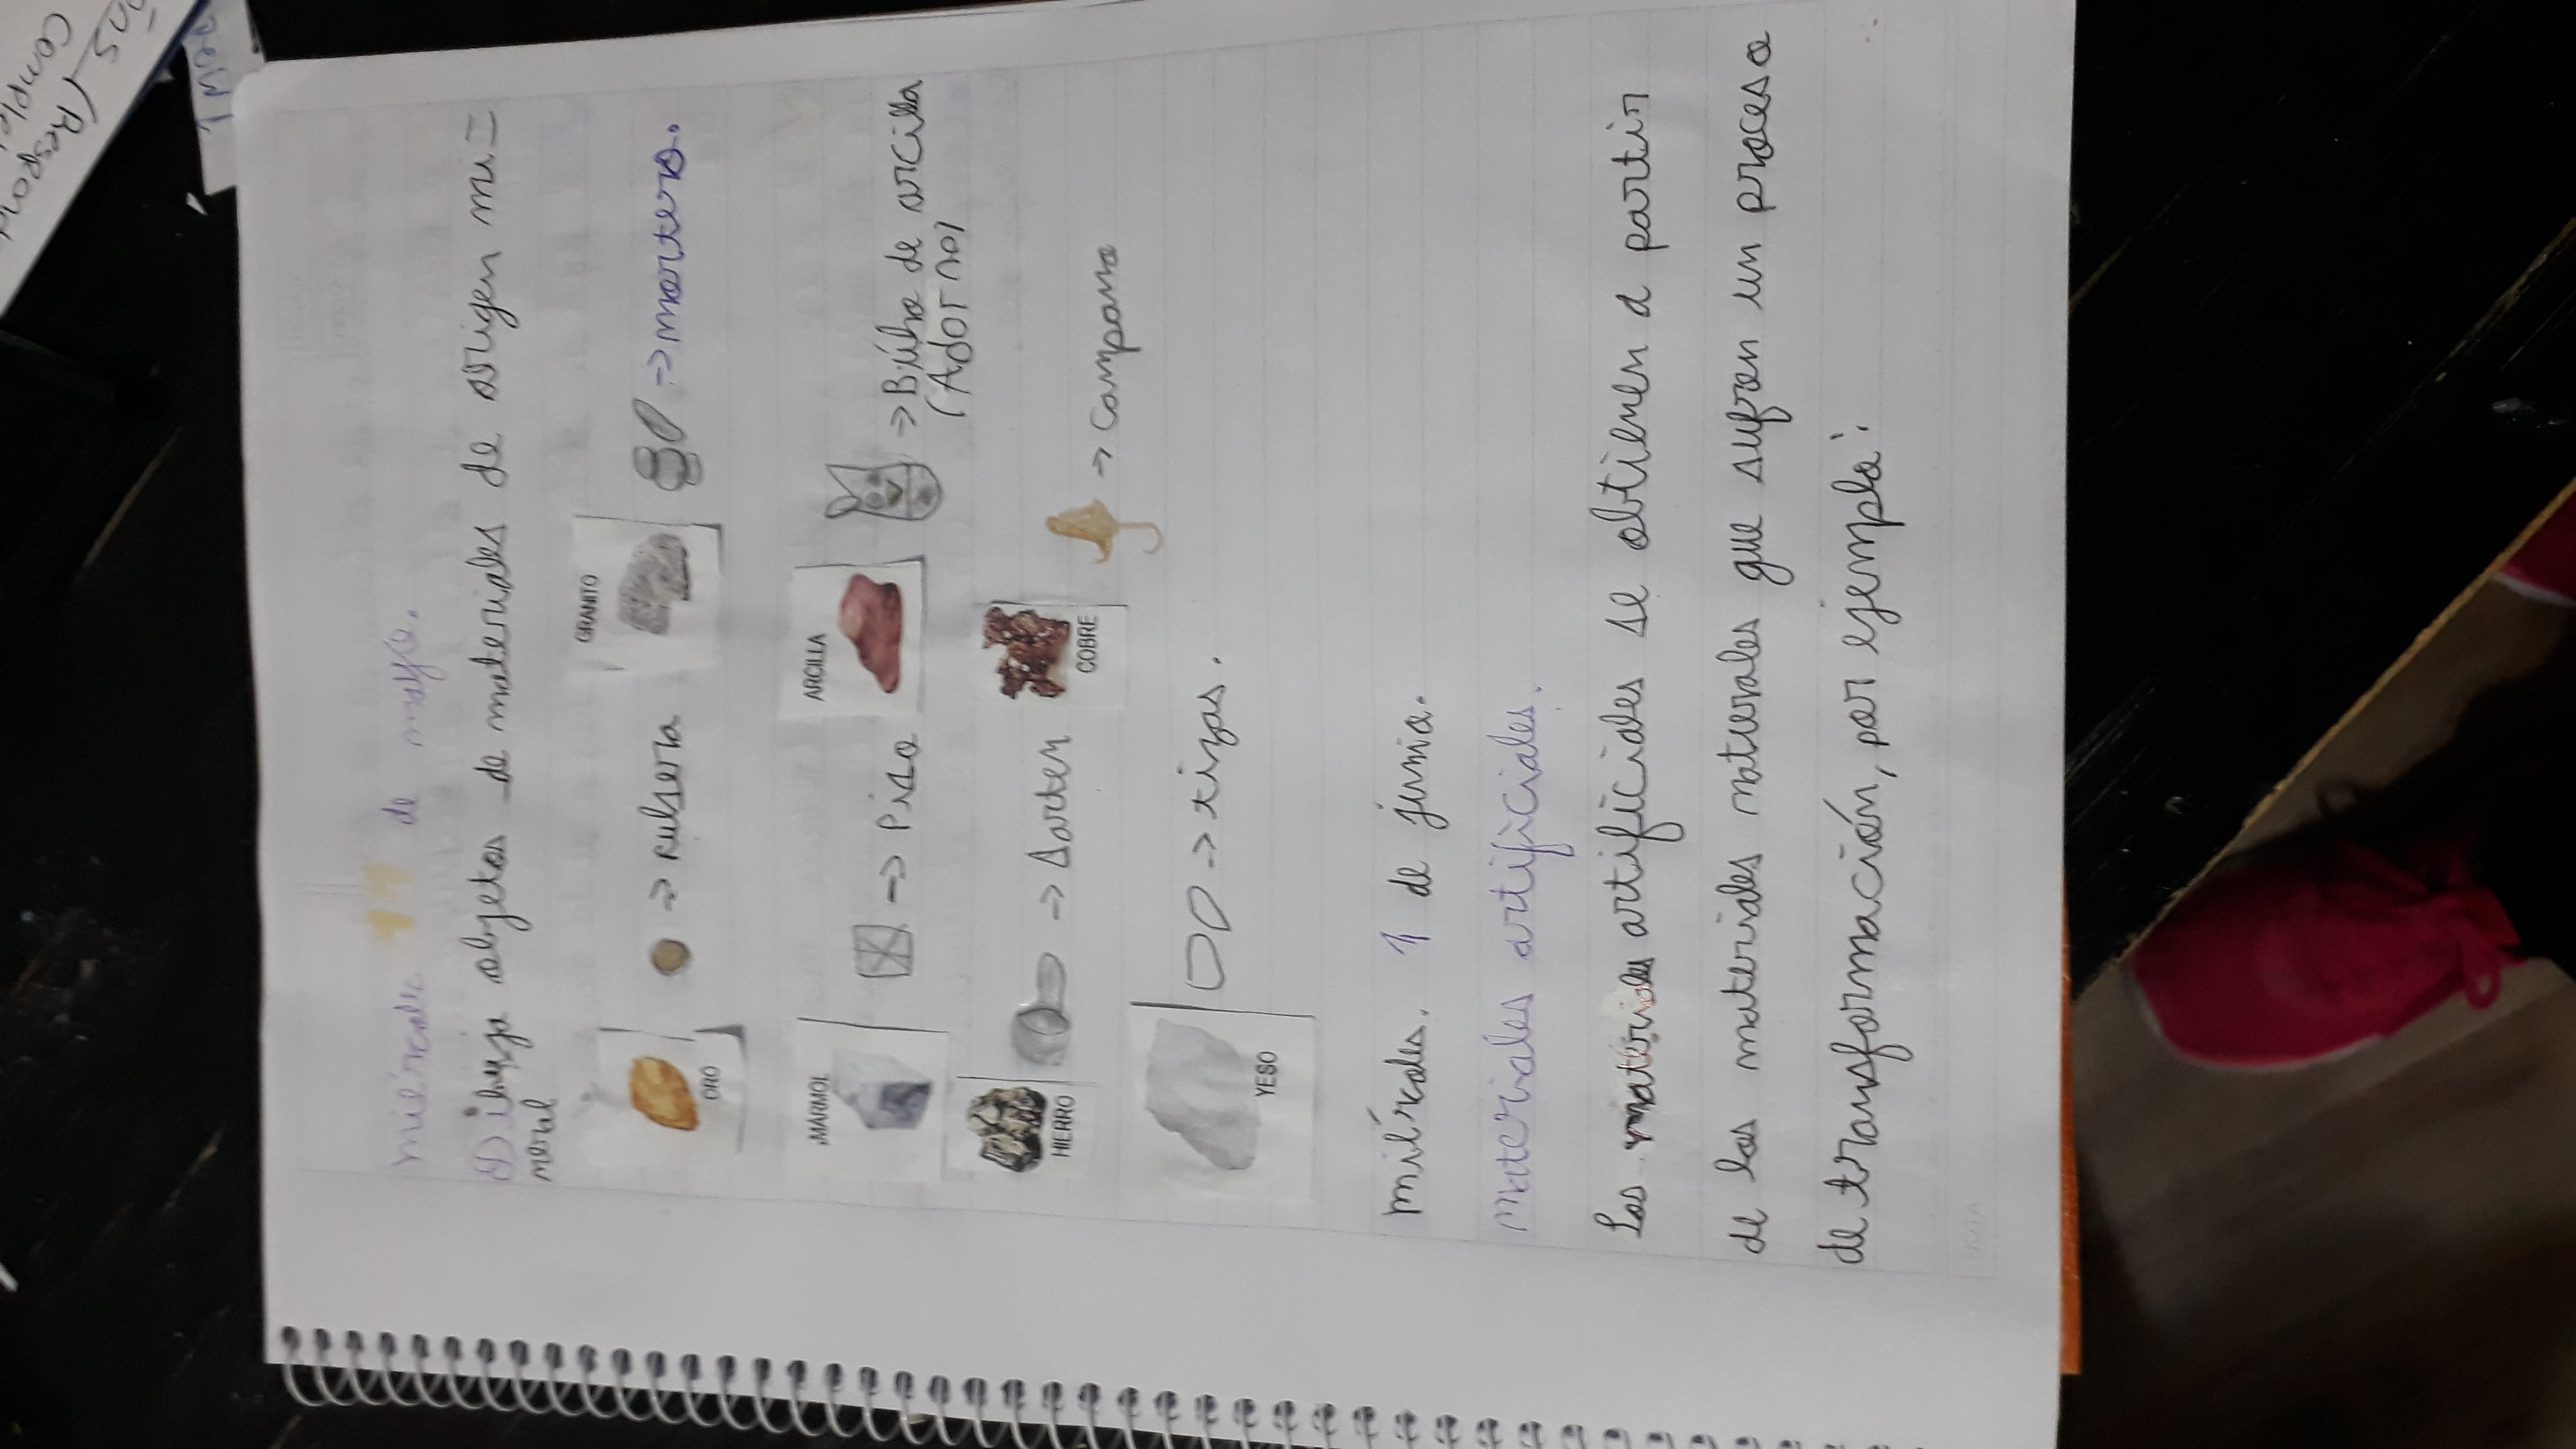 miércoles de mayo.
d) ibuja objetos de materiales de origen mi-
neral
GRANITO
ORO
→ pulsera
→ mortero.
MÁRMOL
→ Piso
ARCILLA
→ Búho de arcilla
(Adorno)
HIERRO
→ sarten
COBRE
→ campana
YESO
→ tizas.
miércoles. 1 de junio.
materiales artificiales.
Los materiales artificiales se obtienen a partir
de los materiales naturales que sufren un proceso
de transformación, por ejemplo:
NOTA